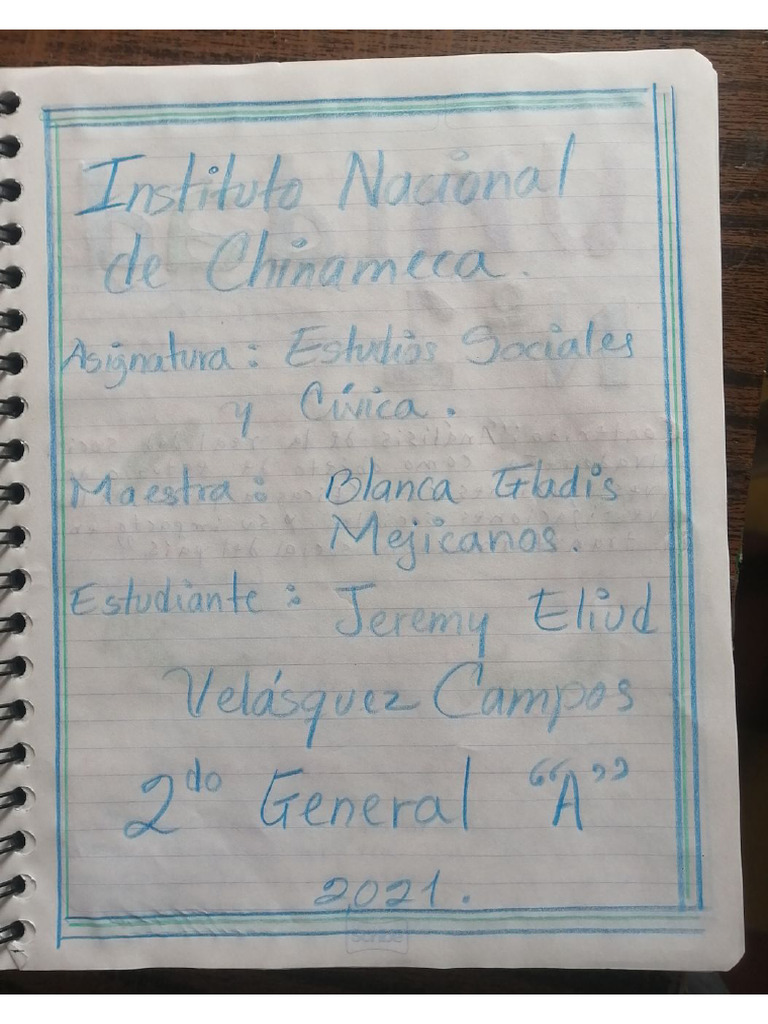 Instituto Nacional
de Chinameca.
Asignatura: Estudios Sociales
y Cívica.
Maestra: Blanca Gladis
Mejicanos.
Estudiante: Jeremy Eliud
Velásquez Campos
2do General “A”
2021.
scribe